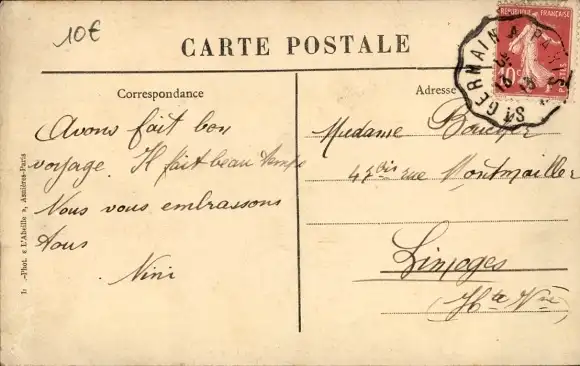 10€
CARTE POSTALE
Correspondance
Adresse
Avons fait bon
voyage. Il fait beau temps
Nous vous embrassons
tous
Nini
Madame Boucher
43bis rue Montmailler
Limoges
(Hte Vne)
Phot. « L'Abeille », Asnières-Paris
REPUBLIQUE FRANÇAISE
10
POSTES
ST GERMAIN A PARIS
13